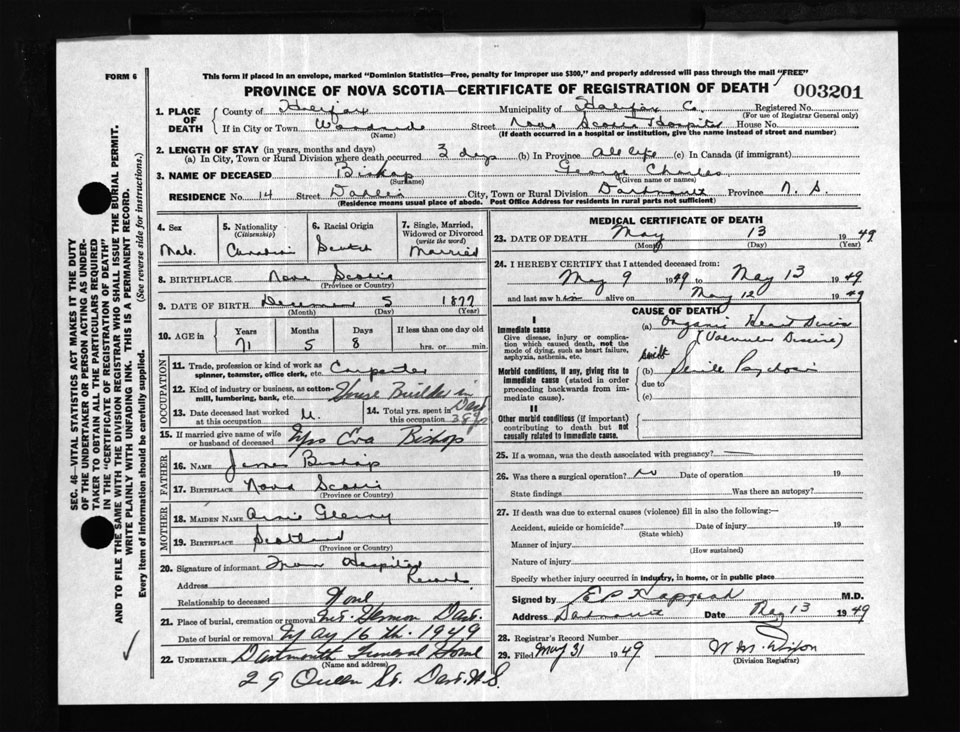 FORM 6
This form if placed in an envelope, marked "Dominion Statistics—Free, penalty for improper use $300," and properly addressed will pass through the mail "FREE"
PROVINCE OF NOVA SCOTIA—CERTIFICATE OF REGISTRATION OF DEATH 003201
1. PLACE OF DEATH
County of Halifax Municipality of Halifax Co. Registered No.
(For use of Registrar General only)
If in City or Town Woodside Street Nova Scotia Hospital House No.
(Name) (If death occurred in a hospital or institution, give the name instead of street and number)
2. LENGTH OF STAY (in years, months and days)
(a) In City, Town or Rural Division where death occurred 3 dys (b) In Province all life (c) In Canada (if immigrant)
3. NAME OF DECEASED Bishop George Charles
(Surname) (Given name or names)
RESIDENCE No. 14 Street Dahlia City, Town or Rural Division Dartmouth Province N. S.
(Residence means usual place of abode. Post Office Address for residents in rural parts not sufficient)
4. Sex
Male
5. Nationality
(Citizenship)
Canadian
6. Racial Origin
Scotch
7. Single, Married, Widowed or Divorced
(write the word)
Married
8. BIRTHPLACE Nova Scotia
(Province or Country)
9. DATE OF BIRTH December 5 1877
(Month) (Day) (Year)
10. AGE in
Years Months Days If less than one day old
71 5 8 hrs. or min.
11. Trade, profession or kind of work as spinner, teamster, office clerk, etc. Carpenter
12. Kind of industry or business, as cotton-mill, lumbering, bank, etc. House Building in Dart
13. Date deceased last worked at this occupation U.
14. Total yrs. spent in this occupation 39 ys
15. If married give name of wife or husband of deceased Mrs Eva Bishop
FATHER
16. NAME James Bishop
17. BIRTHPLACE Nova Scotia
(Province or Country)
MOTHER
18. MAIDEN NAME Annie
19. BIRTHPLACE Scotland
(Province or Country)
20. Signature of informant From Hospital Records
Address
Relationship to deceased None
21. Place of burial, cremation or removal Mt. Hermon Dart.
Date of burial or removal May 16 th. 1949
22. UNDERTAKER Dartmouth Funeral Home
(Name and address)
29 Queen St. Dart. N.S.
MEDICAL CERTIFICATE OF DEATH
23. DATE OF DEATH May 13 1949
(Month) (Day) (Year)
24. I HEREBY CERTIFY that I attended deceased from:
May 9 1949 to May 13 1949
and last saw him alive on May 12 1949
CAUSE OF DEATH
I
Immediate cause
Give disease, injury or complication which caused death, not the mode of dying, such as heart failure, asphyxia, asthenia, etc.
(a) Organic Heart Disease
(Valvular Disease)
Morbid conditions, if any, giving rise to immediate cause (stated in order proceeding backwards from immediate cause).
(b) Senile Psychosis
due to
(c)
II
Other morbid conditions (if important) contributing to death but not causally related to immediate cause.
25. If a woman, was the death associated with pregnancy? —
26. Was there a surgical operation? no Date of operation 19
State findings Was there an autopsy?
27. If death was due to external causes (violence) fill in also the following:—
Accident, suicide or homicide? Date of injury 19
(State which)
Manner of injury
(How sustained)
Nature of injury
Specify whether injury occurred in industry, in home, or in public place
Signed by M.D.
Address Dartmouth Date May 13 1949
28. Registrar's Record Number
29. Filed May 31 1949 W. M. Dixon
(Division Registrar)
SEC. 46—VITAL STATISTICS ACT MAKES IT THE DUTY
OF THE UNDERTAKER OR PERSON ACTING AS UNDERTAKER TO OBTAIN ALL THE PARTICULARS REQUIRED
IN THE "CERTIFICATE OF REGISTRATION OF DEATH"
AND TO FILE THE SAME WITH THE DIVISION REGISTRAR WHO SHALL ISSUE THE BURIAL PERMIT.
WRITE PLAINLY WITH UNFADING INK. THIS IS A PERMANENT RECORD.
Every item of information should be carefully supplied. (See reverse side for instructions.)